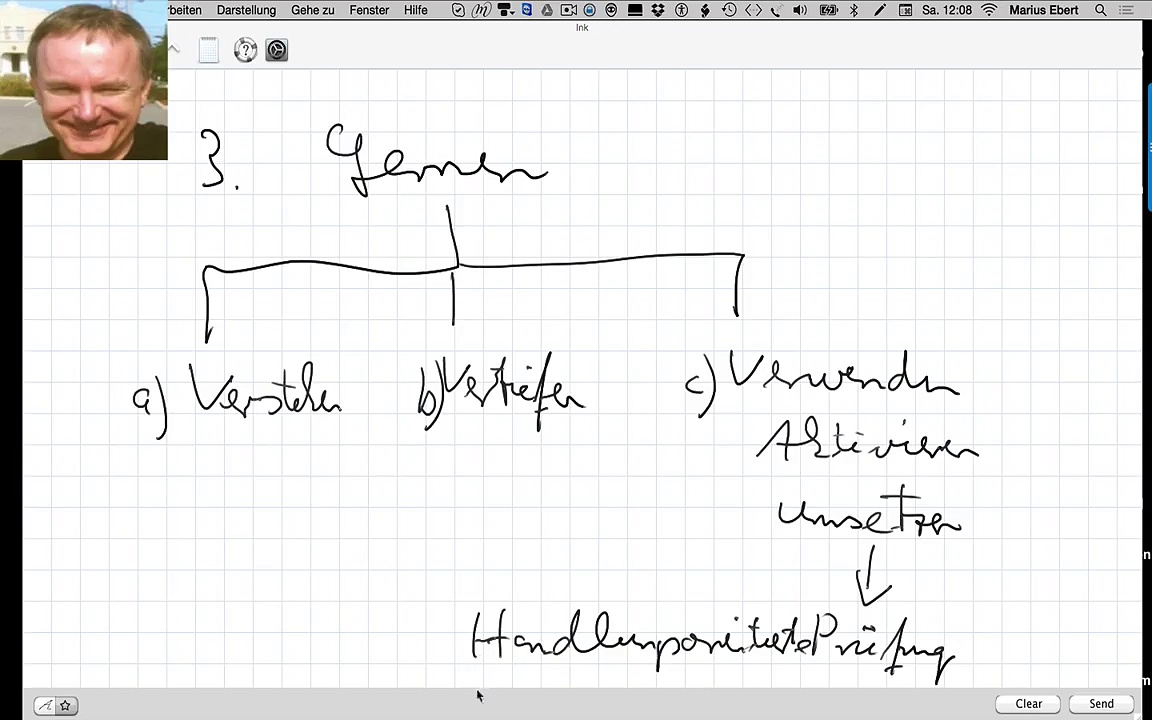 rbeiten Darstellung Gehe zu Fenster Hilfe Sa. 12:08 Marius Ebert
Ink
3. Lernen
a) Verstehen b) Vertiefen c) Verwenden
Aktivieren
umsetzen
Handlungsorientierte Prüfung
Clear Send